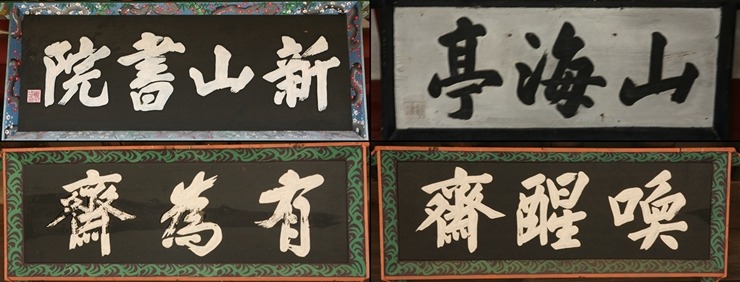 新山書院
山海亭
有為齋
喚醒齋